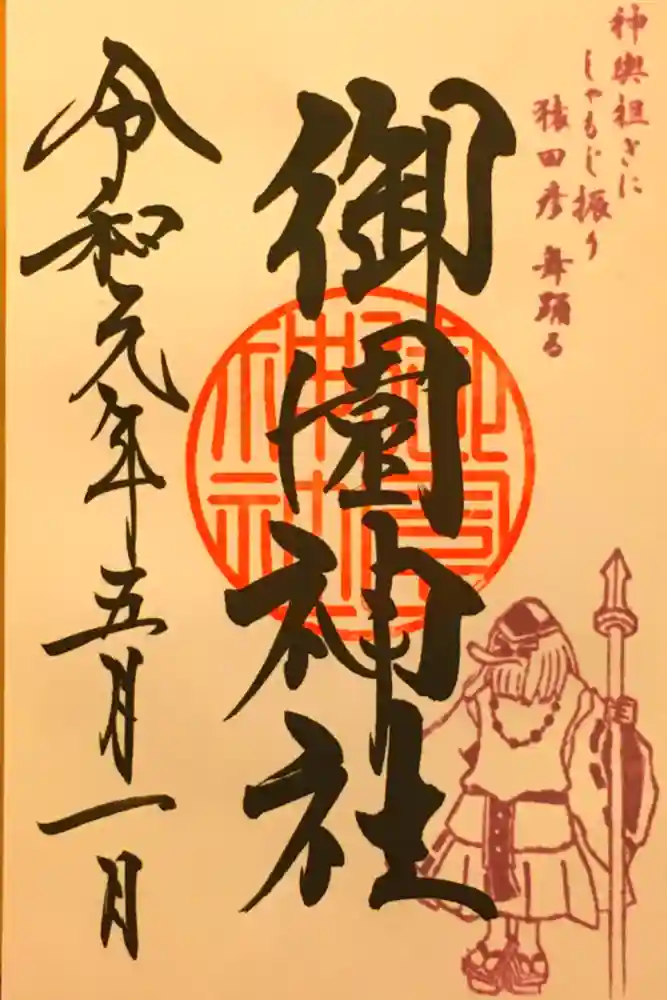 神輿担ぎに
しゃもじ振り
猿田彦 舞踊る
御園神社
御園神社
令和元年五月一日